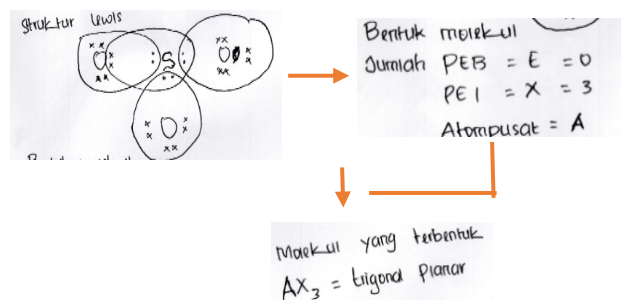 Struktur Lewis
O S O
O
Bentuk molekul
Jumlah PEB = E = 0
PEI = X = 3
Atom pusat = A
Molekul yang terbentuk
AX₃ = trigonal Planar